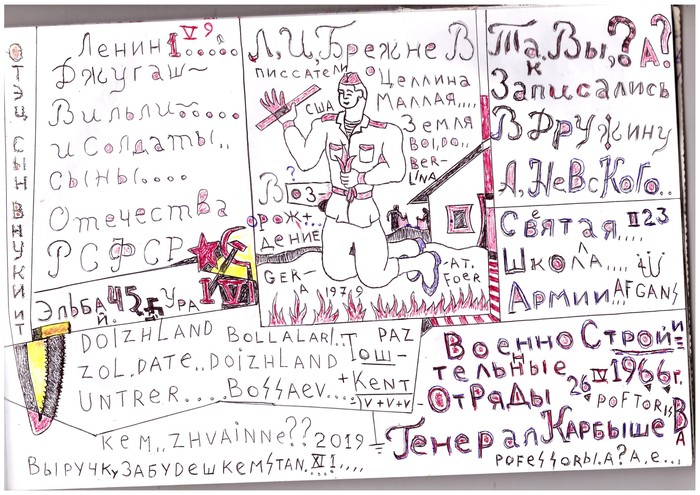 ОТЭЦ СЫН ВНУКИ ИТ
Ленин I V 9
Джугаш~
Вильли
и солдаты..
сыны....
Отечества
РСФСР
I VI
Эльба 45 Ура
й.
Л,И,БрежнеВ
писсатели
США
Целлина
Маллая....
Земля
BOI,DO,,
BER-
LINA
?
Воз-
рож+...
дение
GER-
A 197,9
-AT.
FOER
Та,Вы,?А?
к
Записались
В Дружину
А.Невского..
Святая II 23
Школа....
Армии,,,,
AFGANS
DOIZHLAND BOLLALARI..
ZOL.DATE..DOIZHLAND
UNTRER.... BOSSAEV....
PAZ
Тош-
+KENT
V+V+V-
Военно Строй
тельные
Отряды
26 IV 1966г.
POFTORIS
Генерал Карбышев
POFESSORЫ.А?А,е...
кем,,ZHVAINNE?? 2019
Выручку забудешкемSTAN. XI 1....